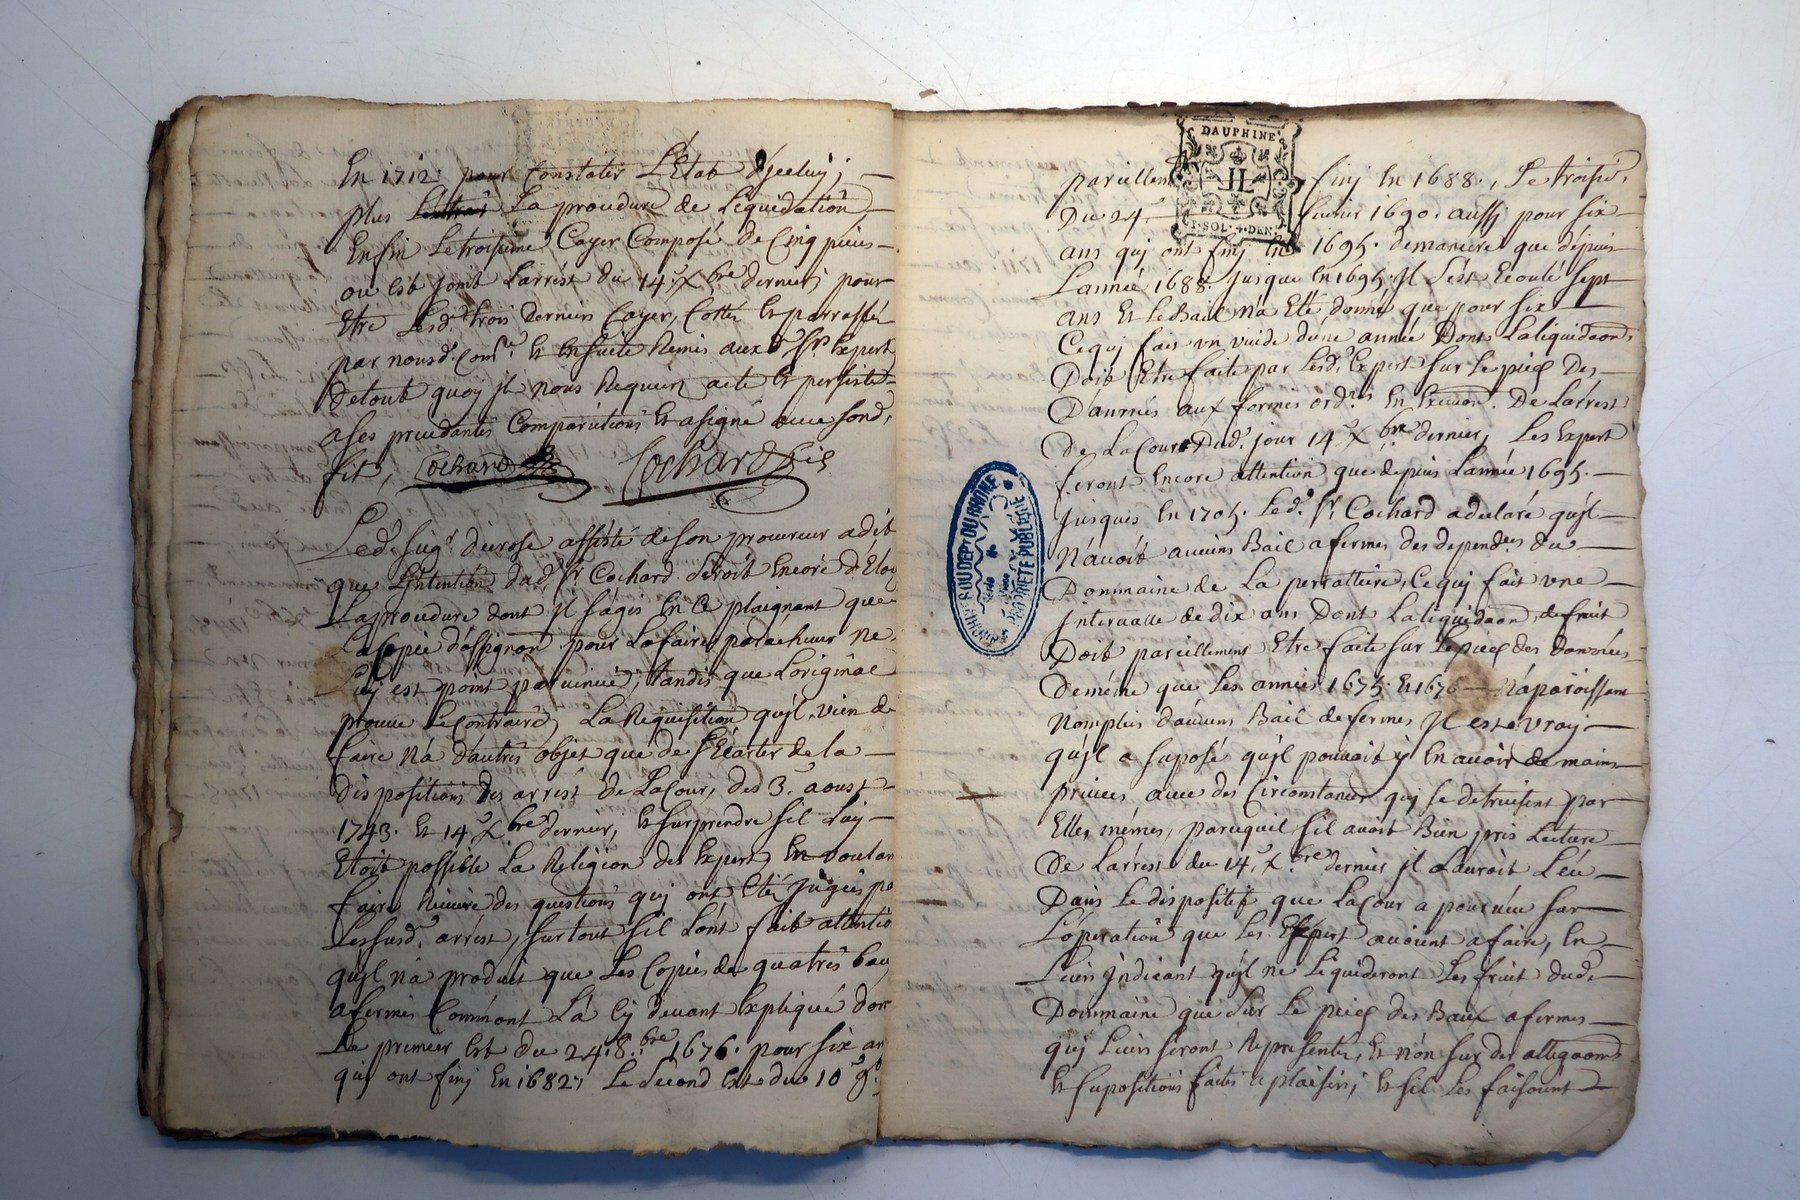 En 1712. pour Constater L'Etab d'jceluy;
plus La proudure de Liquidation
Enfin Le troisieme Cayer Composé de Cinq pieces
ou est joint Larrést du 14.e Xbre dernier, pour
Etre Lesd. trois derniers Cayer, Cotter Et parraffér
par nousd. Com.re Et Ensuite Remis aux d. Srs Expert
detout quoy jl nous Requiert acte Et persiste
a ses precedantes Comparutions Et a signé avec sond.
fit, Cochard Cochard fis
Led. Sieg.r assisté de son procureur a dit
que L'Intention dud. Sr Cochard seroit Encore d'Eloy
La proudure dont jl s'agit En Ce plaignant que
La Copie d'assignon. pour La faire parachever ne
Luy est point parvenüe, tandis que L'original
prouve Le Contraire, La Requisition qujl vien de
faire Na d'autres objet que de S'Ecarter de la
dispositions des arrést de La Cour, des 3.e aoust
1743. Et 14.e Xbre dernier, Et surprendre sil Luy
Etoit possible La Religion des Expert, En voulan
faire Revivre des questions quj ont Eté jugées pa
Lessusd. arrést, surtout sil L'ont fait attentio
qujl na produit que Les Copies de quatres bau
afermes Comm'ont L'a Cy devant Expliqué don
Le premier Est du 24. 8.bre 1676. pour six an
quj ont finj En 1682, Le second Est du 10.e 9.
DAUPHINÉ
1·SOL·4·DEN.
pareillem finj En 1688., Le troisie.
Du 24.e fevrier 1690. aussj pour six
ans quj ont finj En 1695. demaniere que dépuis
L'année 1688. jusque En 1695. jl s'est Ecoulé sept
ans Et Le Bail n'a Eté donné que pour six
Cequj fais un vuide d'une année Dont La liquidaon.
Doit Etre faite par Lesd. Expert sur Le pied Des
D'anrrées aux formes ord.res En Execuon. De L'arrest
De La Cour Dud. jour 14.e Xbre dernier, Les Expert
feront Encore attention que depuis L'année 1695.
jusques En 1705. Led. Sr Cochard a declaré qujl
N'avoit aucuns Bail a fermes des depend.es du
Dommaine de La perrattiere, Ce quj fait une
Intervalle de dix ans Dont La liquidaon. de fruit
Doit pareillement Etre faite sur Le pied des danrrées
Demême que Les années 1675. Et 1676 N'aparoissant
Nomplus d'aucuns Bail de fermes jl est vray
qujl a suposé qujl pouvoit y En avoir de mains
privées avec des Circonstances quj se detruisent par
Elles mêmes, parceque sil avoit Bien pris Lecture
De Larrest du 14.e Xbre dernier jl auroit Leu
Dans Le dispositif que La Cour a pourvue sur
L'opération que Les Expert avoient a faire, En
Leurs jndicant qujl ne Liquideront Les fruit dud.
Dommaine que sur Le pied des Baux a fermes
quj Leurs seront Representés, Et non sur des allegaons
Et supositions faites a plaisir; Et sil Les faisoient
DU DEPT DU RHONE
PROPRIETE PUBLIQUE